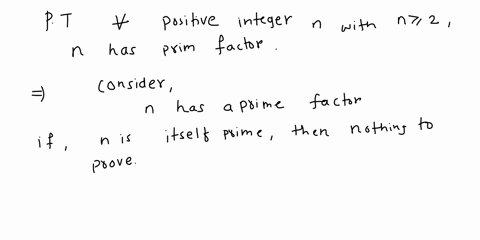 P.T ∀ positive integer n with n≥2,
n has prim factor.
⇒ consider,
n has a prime factor
if, n is itself prime, then nothing to
prove.